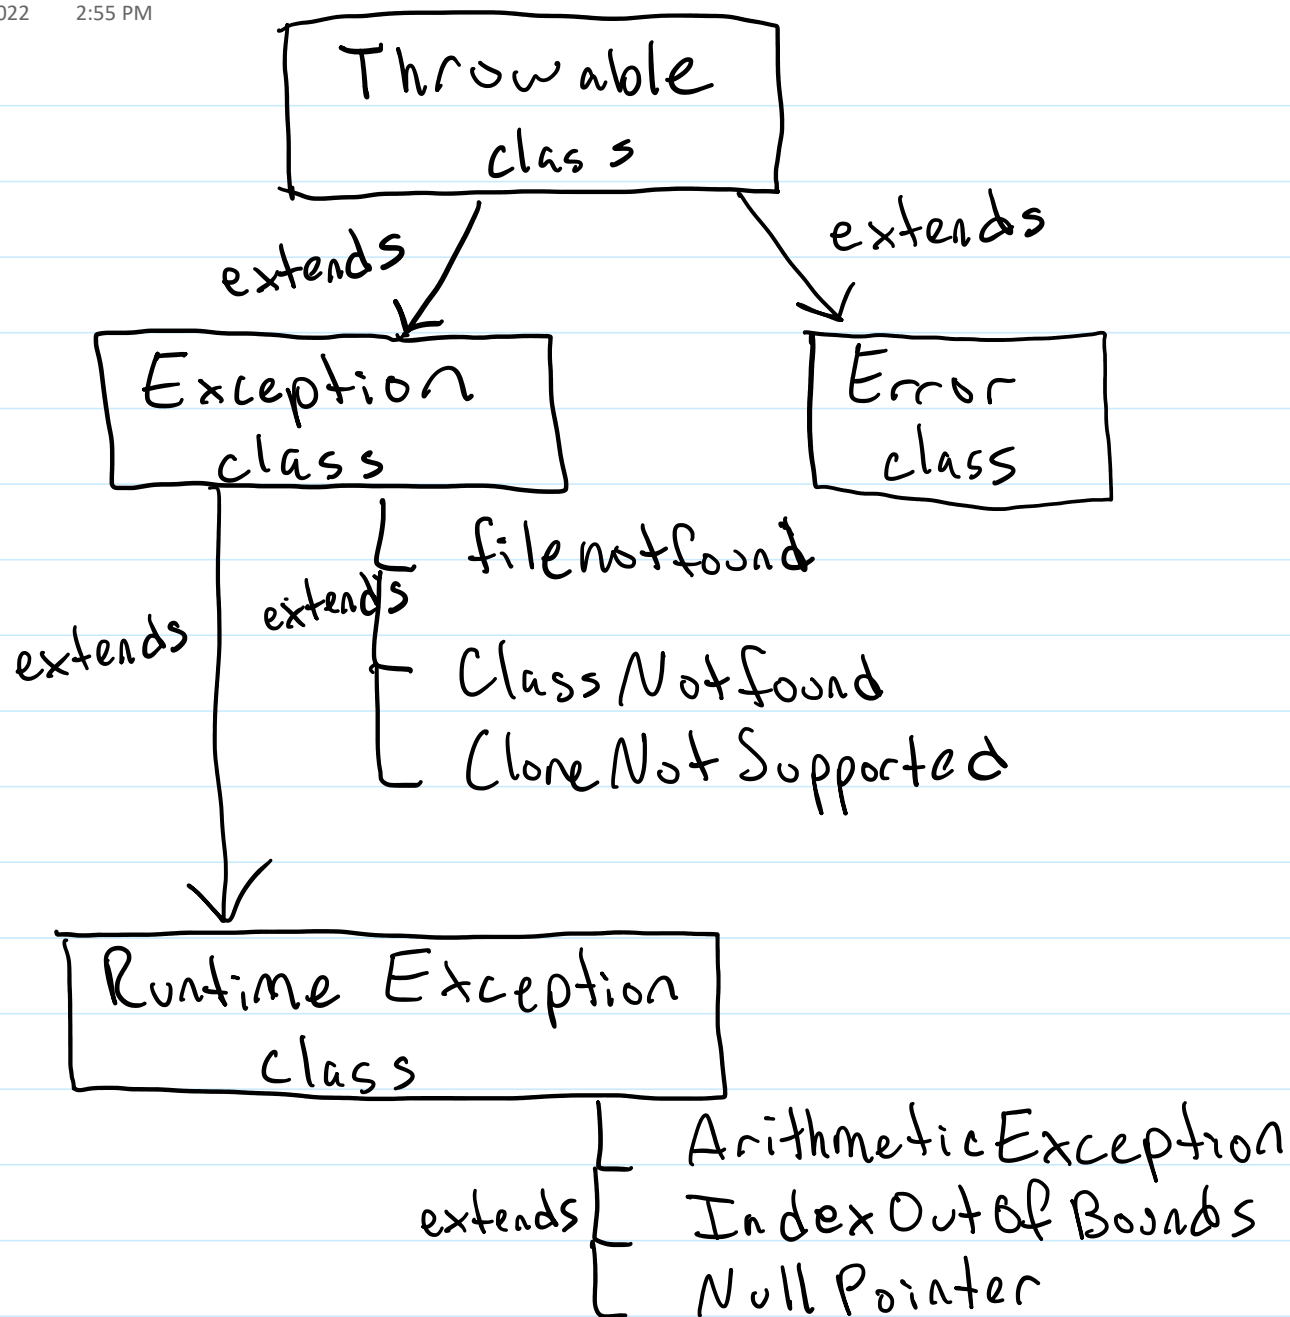 022 2:55 PM
Throwable
class
extends
extends
Exception
class
Error
class
filenotfound
extends
extends
ClassNotfound
CloneNotSupported
Runtime Exception
class
ArithmeticException
extends
IndexOutOfBounds
NullPointer